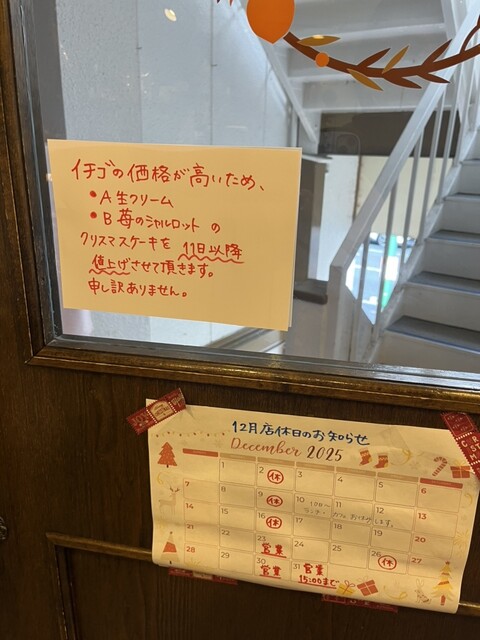 イチゴの価格が高いため、
•A生クリーム
•B苺のシャルロット の
クリスマスケーキを 11日以降
値上げさせて頂きます。
申し訳ありません。
12月店休日のお知らせ
December 2025
1 2 休 3 4 5 6
7 8 9 休 10 11 12 13
14 15 16 休 17 18 19 20
21 22 23 営業 24 25 26 休 27
28 29 30 営業 31 営業 15:00まで